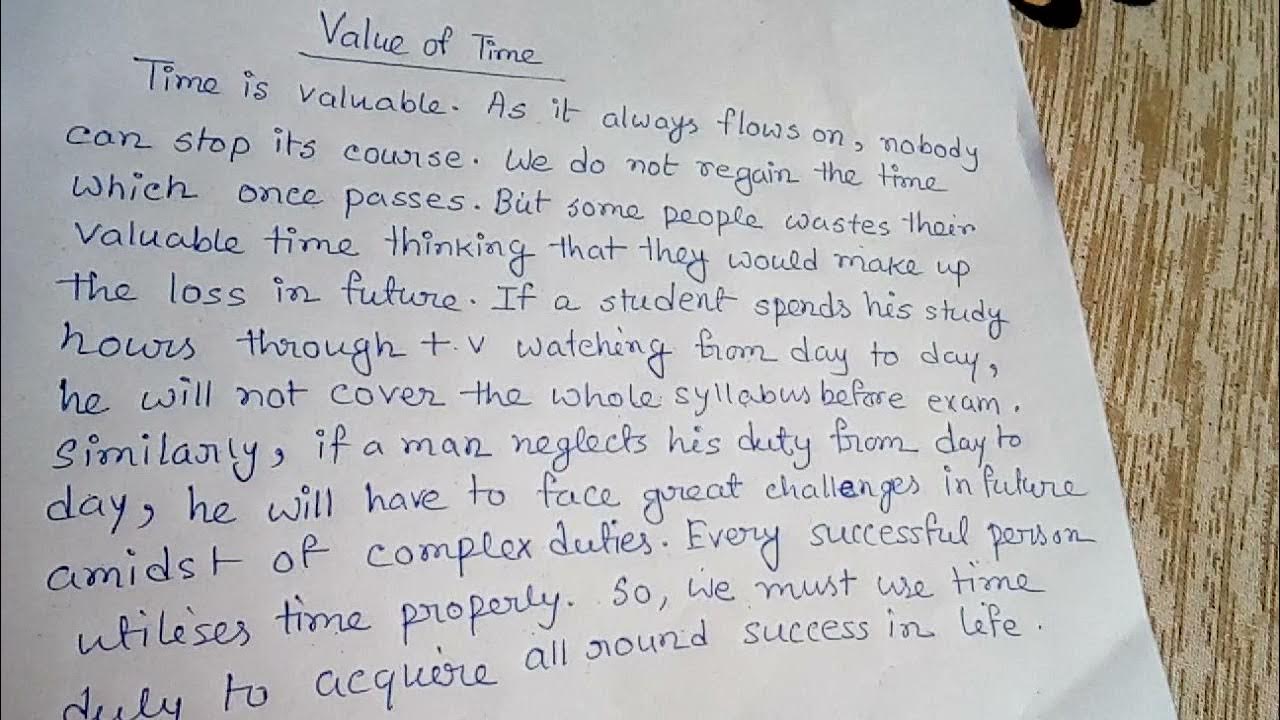 Value of Time
Time is valuable. As it always flows on, nobody
can stop its course. We do not regain the time
which once passes. But some people wastes their
valuable time thinking that they would make up
the loss in future. If a student spends his study
hours through t.v watching from day to day,
he will not cover the whole syllabus before exam.
Similarly, if a man neglects his duty from day to
day, he will have to face great challenges in future
amidst of complex duties. Every successful person
utilises time properly. So, we must use time
duly to acquire all round success in life.